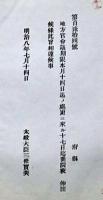 第百弐拾四号
府縣
地方官會議期限本月十四日迄ノ處更ニ來ル十七日迄開院被 仰出
候條此旨相達候事
明治八年七月十四日
太政大臣三條實美